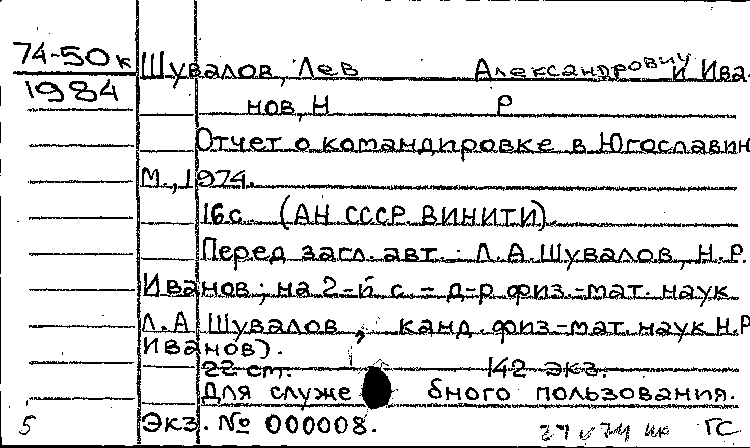 74-50к
1984
Шувалов, Лев Александрович и Ива-
нов, Н Р
Отчет о командировке в Югославии
М., 1974.
16с. (АН СССР. ВИНИТИ)
Перед загл. авт.: Л.А.Шувалов, Н.Р.
Иванов; на 2-й с. – д-р физ.-мат. наук
Л.А Шувалов, канд. физ-мат. наук Н.Р
Иванов).
22 ст. 142 экз.
Для служебного пользования.
5 Экз. № 000008. ГС